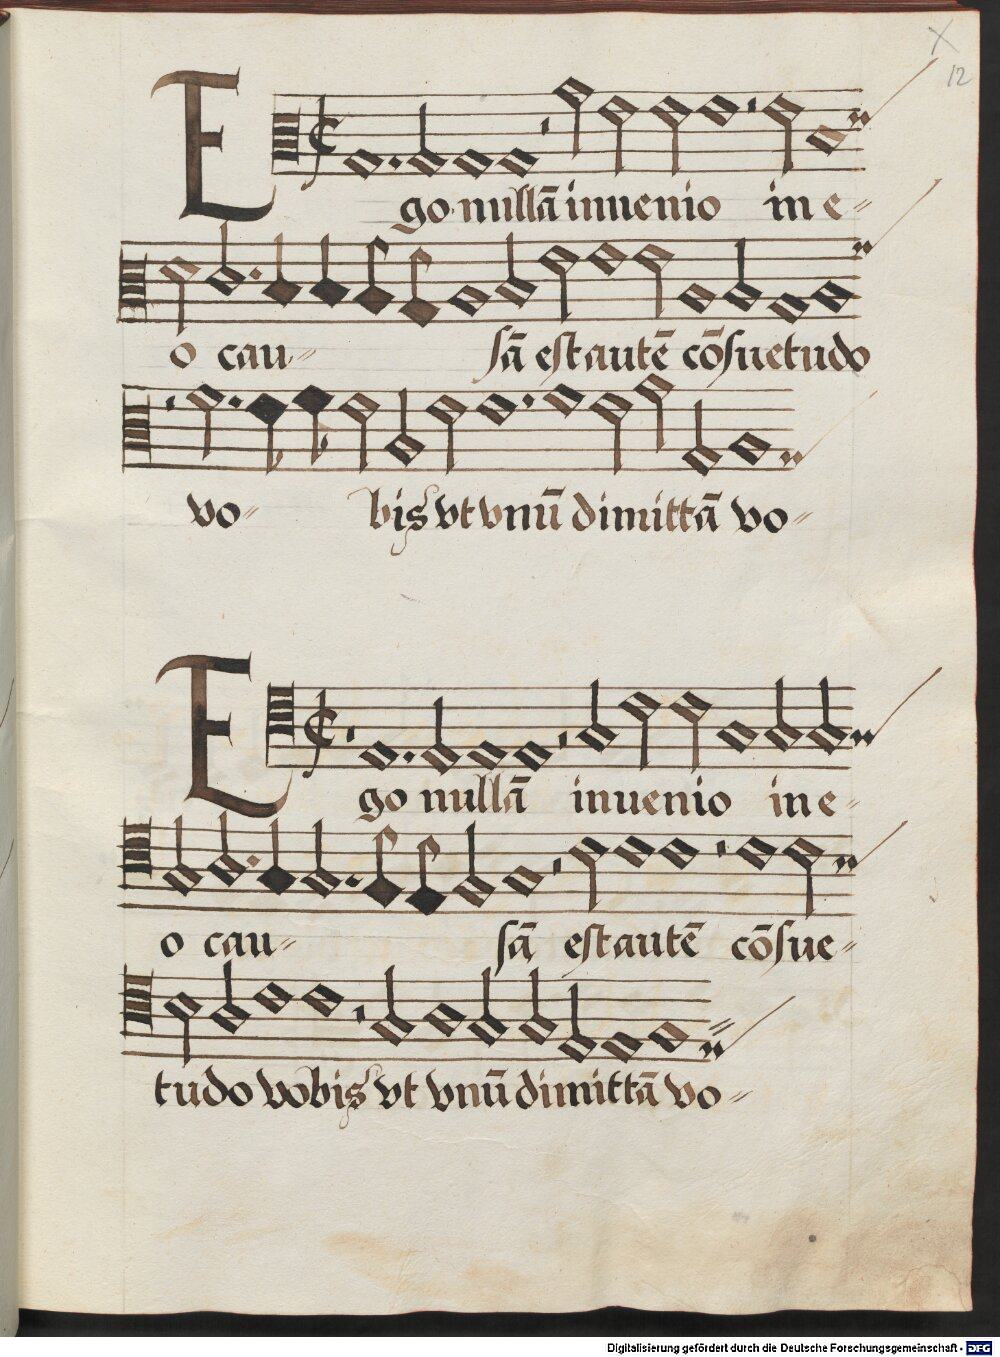 X
12
Ego nullā inuenio in e-
o cau- sā est autē cōsuetudo
vo- bis vt vnū dimittā vo-
Ego nullā inuenio in e-
o cau- sā est autē cōsue-
tudo vobis vt vnū dimittā vo-
Digitalisierung gefördert durch die Deutsche Forschungsgemeinschaft - DFG